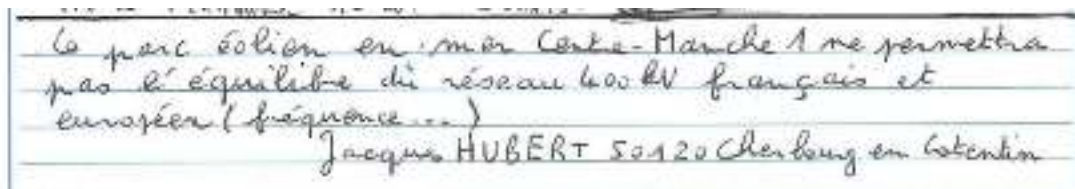 Le parc éolien en mer Centre-Manche 1 ne permettra
pas l'équilibre du réseau 400 kV français et
européen (fréquence...)
Jacques HUBERT 50120 Cherbourg en Cotentin